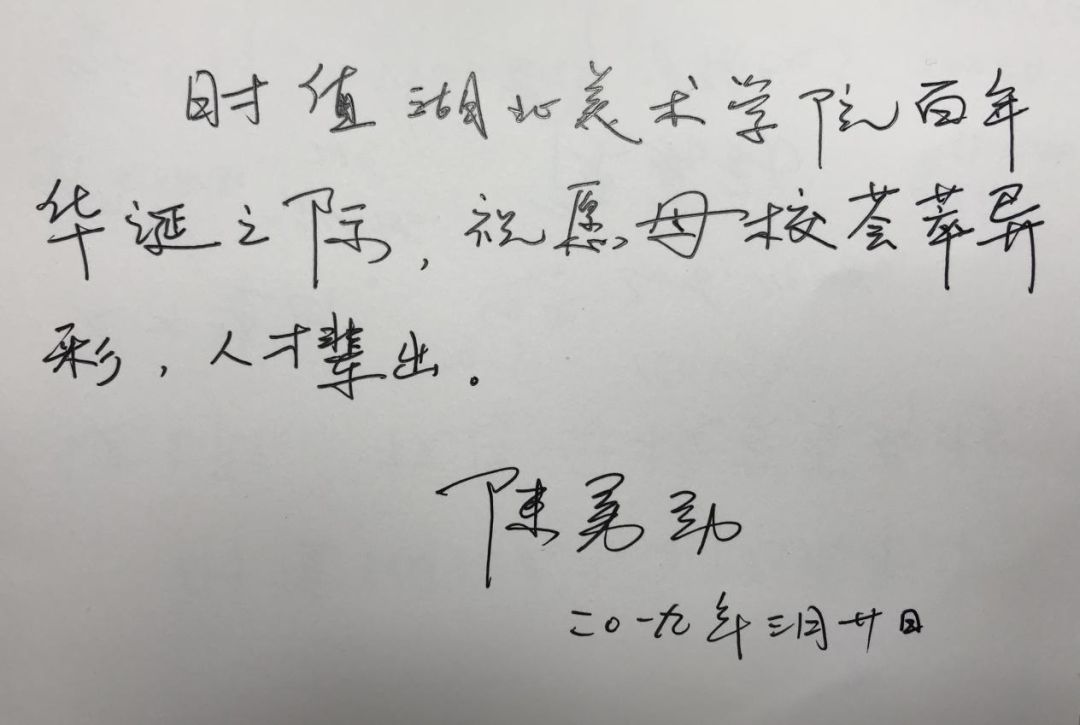 时值湖北美术学院百年
华诞之际，祝愿母校荟萃异
彩，人才辈出。
陈勇劲
二〇一九年三月廿日